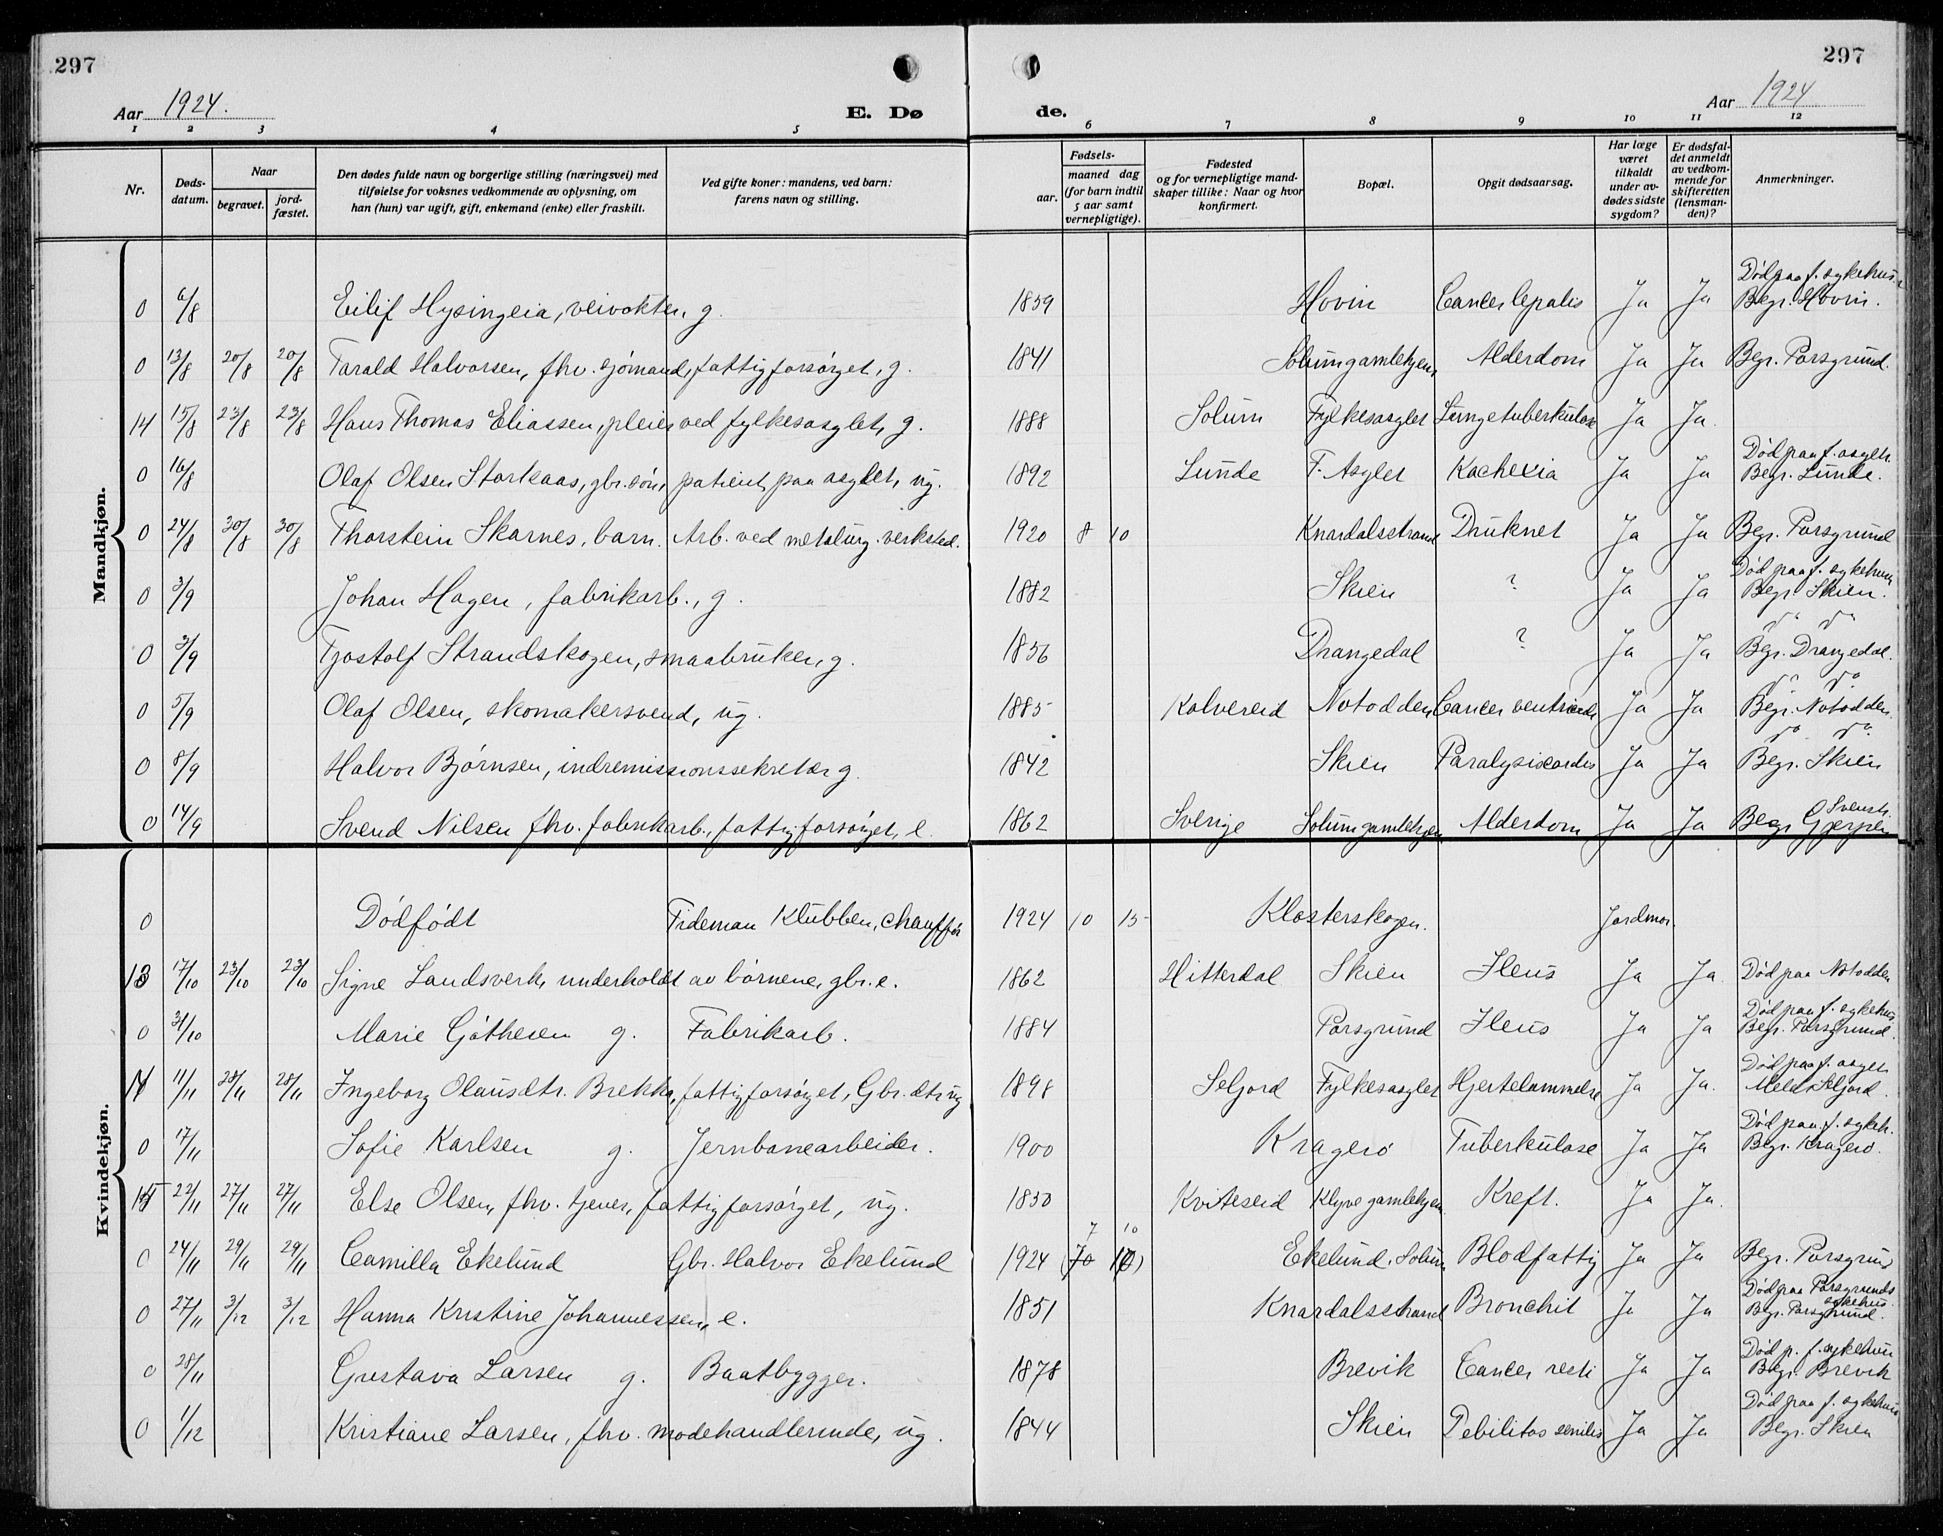 297
297
Aar 1924.
E. Dø
de.
Aar 1924
1 2 3 4 5 6 7 8 9 10 11 12
Nr.
Døds-
datum.
Naar
begravet.
jord-
fæstet.
Den dødes fulde navn og borgerlige stilling (næringsvei) med
tilføielse for voksnes vedkommende av oplysning, om
han (hun) var ugift, gift, enkemand (enke) eller fraskilt.
Ved gifte koner: mandens, ved barn:
farens navn og stilling.
Fødsels-
aar.
maaned dag
(for barn indtil
5 aar samt
vernepligtige).
Fødested
og for vernepligtige mand-
skaper tillike: Naar og hvor
konfirmert.
Bopæl.
Opgit dødsaarsag.
Har læge
været
tilkaldt
under av-
dødes sidste
sygdom?
Er dødsfal-
det anmeldt
av vedkom-
mende for
skifteretten
(lensman-
den)?
Anmerkninger.
Mandkjøn.
Død paa f. sykehus.
0 6/8 Eilif Hysingeia, veivokter, g. 1859 Hovin Cancer Ja Ja Begr. Hovin.
0 13/8 20/8 20/8 Tarald Halvorsen, fhv. sjømand, fattigforsørget, g. 1841 Solumgamlehjem, Alderdom Ja Ja Begr. Porsgrund.
14 15/8 23/8 23/8 Hans Thomas Eliassen, pleier ved fylkesasylet, g. 1888 Solum Fylkesasylet Lungetuberkulose Ja Ja.
Død paa f. asylet.
0 16/8 Olaf Olsen Storkaas, gbr.søn, patient paa asylet, ug. 1892 Lunde F. Asylet Kachexia Ja Ja Begr. Lunde.
0 24/8 30/8 30/8 Thorstein Skarnes, barn. Arb. ved metalurg. verksted. 1920 8 10 Knardalsstrand Druknet Ja Ja Begr. Porsgrund
Død paa f. sykehus
0 3/9 Johan Hagen, fabrikarb., g. 1882 Skien ? Ja Ja Begr. Skien.
do do
0 3/9 Tjostolf Strandskogen, smaabruker, g. 1856 Drangedal ? Ja Ja Begr. Drangedal.
do do
0 5/9 Olaf Olsen, skomakersvend, ug. 1885 Kolvereid Notodden Cancer ventriculi Ja Ja Begr. Notodden.
do do
0 8/9 Halvor Bjørnsen, indremissionssekretær g. 1842 Skien Paralysis cordis Ja Ja Begr. Skien
Svensk.
0 14/9 Svend Nilsen fhv. fabrikarb., fattigforsørget, e. 1862 Sverige Solumgamlehjem Alderdom Ja Ja Begr Gjerpen
Kvindekjøn.
0 Dødfødt Tideman Klubben, chauffør 1924 10 15 Klosterskogen. Jordmor.
13 17/10 23/10 23/10 Signe Landsverk, underholdt av børnene, gbr.e. 1862 Hitterdal Skien Ileus Ja Ja Død paa Notodden
Død paa f. sykehus
0 31/10 Marie Gøthesen g. Fabrikarb. 1884 Porsgrund Ileus Ja Ja Begr. Porsgrund.
Død paa f. asylet
14 11/11 28/11 28/11 Ingeborg Olausdtr. Brekka, fattigforsørget, Gbr. dtr ug 1898 Seljord Fylkesasylet Hjertelammelse Ja Ja. Meld. Seljord.
Død paa f. sykeh.
0 17/11 Sofie Karlsen g. Jernbanearbeider. 1900 Kragerø Tuberkulose Ja Ja Begr. Kragerø.
15 22/11 27/11 27/11 Else Olsen, fhv. tjener, fattigforsørget, ug. 1850 Kviteseid Klyve gamlehjem Kreft. Ja Ja.
7 10
0 24/11 29/11 29/11 Camilla Ekelund Gbr. Halvor Ekelund 1924 (70 10) Ekelund, Solum Blodfattig Ja Ja Begr. Porsgrund
Død paa Porsgrunds
sykehus.
0 27/11 3/12 3/12 Hanna Kristine Johannessen, e. 1851 Knardalsstrand Bronchit Ja Ja Begr. Porsgrund.
Død p. f. sykehus
0 28/11 Gustava Larsen g. Baatbygger. 1878 Brevik Cancer recti Ja Ja Begr. Brevik
Død paa f. sykehus
0 1/12 Kristiane Larsen, fhv. modehandlerinde, ug. 1844 Skien Debilitas senilis Ja Ja Begr. Skien